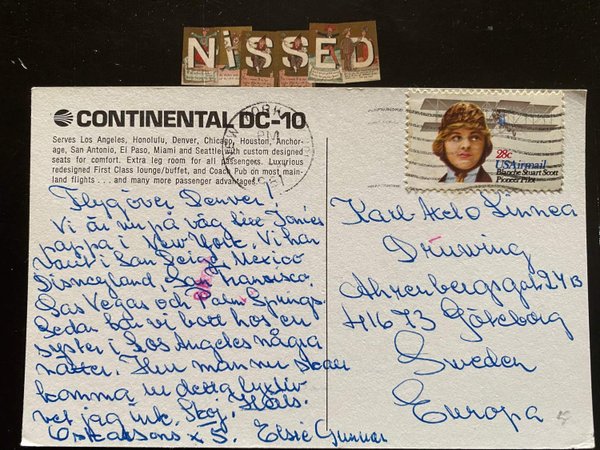 NiSSED
CONTINENTAL DC-10
Serves Los Angeles, Honolulu, Denver, Chicago, Houston, Anchor-
age, San Antonio, El Paso, Miami and Seattle with custom designed
seats for comfort. Extra leg room for all passengers. Luxurious
redesigned First Class lounge/buffet, and Coach Pub on most main-
land flights . . . and many more passenger advantages.
YORK
PM
28c
USAirmail
Blanche Stuart Scott
Pioneer Pilot
Flyg over Denver!
Vi är nu på väg till
pappa i New York. Vi har
varit i San Diego, Mexico
Disneyland, San Fransisco,
Las Vegas och Palm Springs.
Sedan har vi bott hos en
syster i Los Angeles några
nätter. Hur man nu skall
komma ur detta lyxliv
vet jag ink. Skoj. Häls.
Oskarsons x 5. Elsie Gunnar
Karl-Axel o Linnea
Ahrenbergsgat 24B
416 73 Göteborg
Sweden
Europa